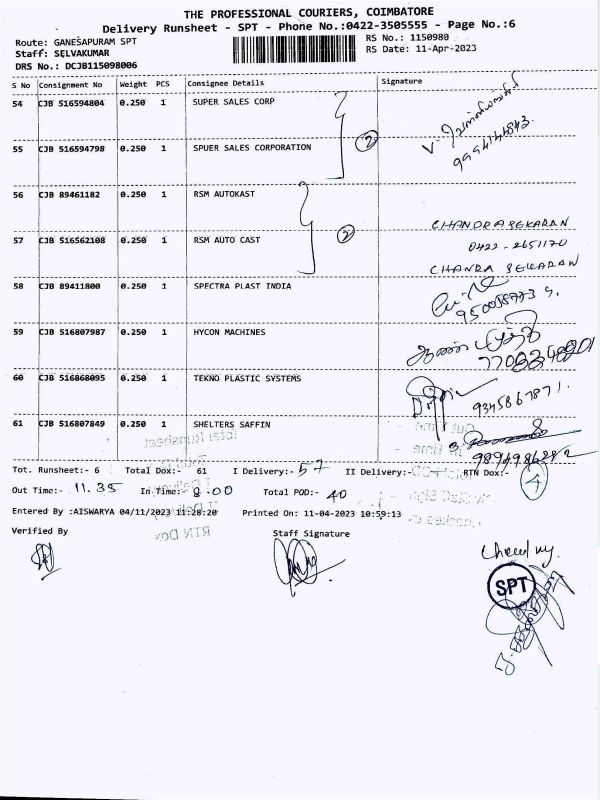 THE PROFESSIONAL COURIERS, COIMBATORE
Delivery Runsheet - SPT - Phone No.:0422-3505555 - Page No.:6
Route: GANESAPURAM SPT
RS No.: 1150980
Staff: SELVAKUMAR
RS Date: 11-Apr-2023
DRS No.: DCJB115098006
S No Consignment No Weight PCS Consignee Details Signature
54 CJB 516594804 0.250 1 SUPER SALES CORP
55 CJB 516594798 0.250 1 SPUER SALES CORPORATION
2
56 CJB 89461182 0.250 1 RSM AUTOKAST
CHANDRASEKARAN
57 CJB 516562108 0.250 1 RSM AUTO CAST
2
0422-2651170
CHANDRA SEKARAN
58 CJB 89411800 0.250 1 SPECTRA PLAST INDIA
59 CJB 516807987 0.250 1 HYCON MACHINES
60 CJB 516868095 0.250 1 TEKNO PLASTIC SYSTEMS
9345867871.
61 CJB 516807849 0.250 1 SHELTERS SAFFIN
Tot. Runsheet:- 6 Total Dox:- 61 I Delivery:- 57 II Delivery:- RTN Dox:- 4
Out Time:- 11.35 In Time:- 8.00 Total POD:- 40
Entered By :AISWARYA 04/11/2023 11:28:20 Printed On: 11-04-2023 10:59:13
Verified By Staff Signature
SPT